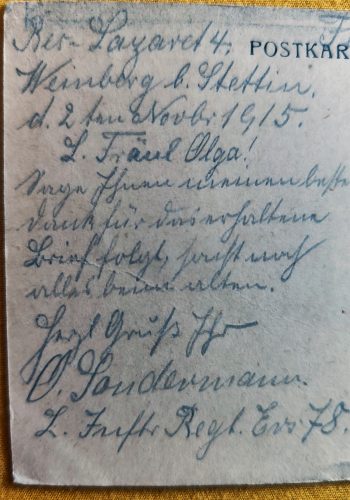 Res-Lazaret 4.
POSTKAR
Weinberg b. Stettin,
d. 2 ten Novbr 1915.
L. Fräul Olga!
Sage Ihnen meinen beste
Dank für das erhaltene
Brief folgt, sonst noch
alles beim alten.
Herzl Gruß Ihr
O. Sondermann.
L. Inftr Regt. Ers 78.